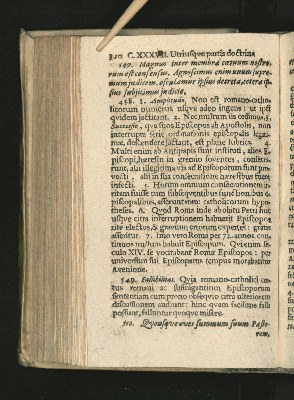 320 C. XXXVII. Utriusque partis doctrina
147. Magnus inter membra cœtuum nostro-
rum est consensus. Agnoscimus enim unum supre-
mum judicem, osculamur ipsius decreta, cetera ip-
sius subjicimus judicio.
148. 1. Amplitudo. Non est romano-catho-
licorum numerus usque adeo ingens: ut ipsi
quidem jactant. 2. Nec multum iis
Successio, qua suos Episcopos ab Apostolis, non
interrupta serie ordinationis episcopalis legiti-
mæ, descendere jactant, est plane lubrica. 4.
Multi enim ab Antipapis sunt instituti, alios E-
piscopi, hæresin in gremio foventes, consecra-
runt, alii illegitima viâ ad Episcopatum sunt pro-
vecti, alii in sua consecratione pravis ritibus fuere
infecti. 5. Horum omnium consecrationem ir-
ritam fuisse cum subsequentibus functionibus e-
piscopalibus, asserunt romano catholicorum hypo-
theses. 6. Quod Roma inde ab obitu Petri huc
usque citra interruptionem habuerit Episcopos
rite electos, & gravium errorum expertes: gratis
asseritur. 7. Imo vero Roma per 72. annos con-
tinuos nullum habuit Episcopum. Qui enim se-
culo XIV. se vocitabant Romæ Episcopos: per
universum sui Episcopatus tempus morabantur
Avenione.
149. Fallibilitas. Quia romano-catholici cœ-
tus romani ac suffragantium Episcoporum
sententiam cum prono obsequio citra ulteriorem
discussionem audiunt; hinc quam facillime falli
possunt, falluntur quoque misere.
150. Quousque oves summum suum Pasto-
rem,